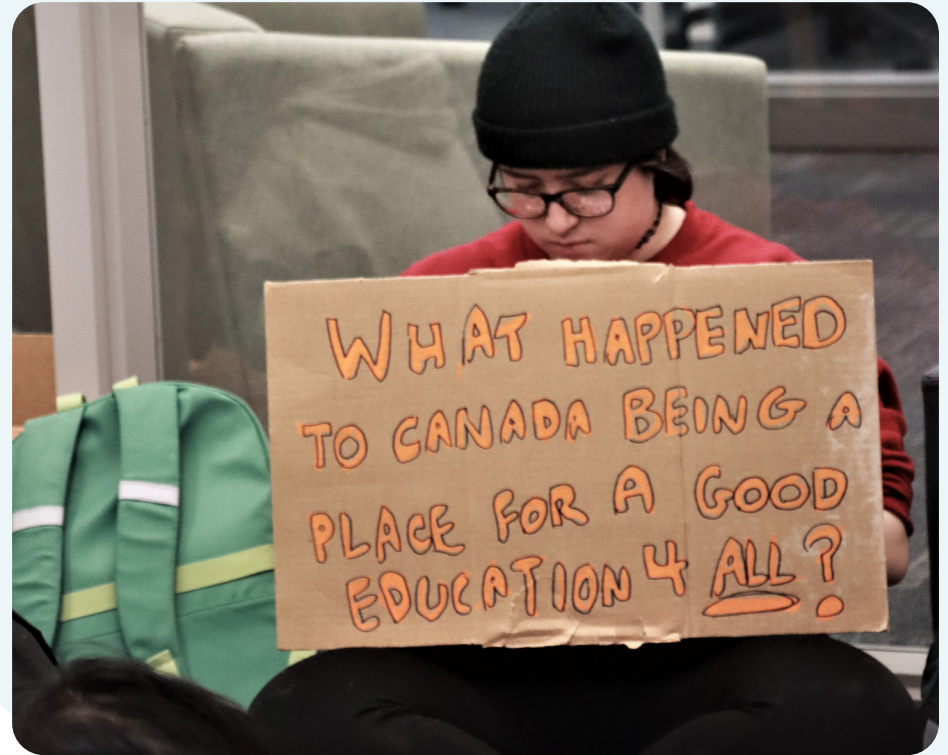 WHAT HAPPENED
TO CANADA BEING A
PLACE FOR A GOOD
EDUCATION 4 ALL?